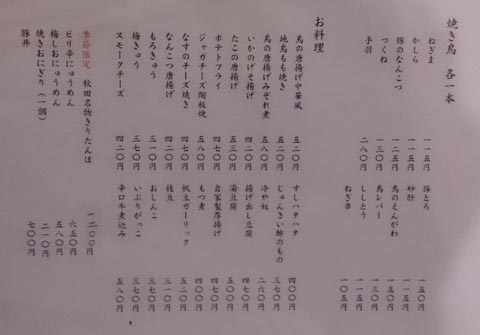 焼き鳥 各一本
ねぎま 一一五円
かしら 一一五円
豚のなんこつ 一一五円
つくね 一三〇円
手羽 二八〇円
豚とろ 一五〇円
砂肝 一一五円
鳥のえんがわ 一五〇円
鳥レバー 一一五円
ししとう 一一五円
ねぎ串 一〇五円
お料理
鳥の唐揚げ中華風 五二〇円
地鳥もも焼き 五二〇円
鳥の唐揚げみぞれ煮 五八〇円
いかのげそ揚げ 四二〇円
たこの唐揚げ 五三〇円
ポテトフライ 四二〇円
ジャガチーズ陶板焼 五八〇円
なすのチーズ焼き 四七〇円
なんこつ唐揚げ 四二〇円
もろきゅう 三一〇円
梅きゅう 三七〇円
スモークチーズ 四二〇円
すしハタハタ 四〇〇円
じゅんさい酢のもの 三七〇円
冷や奴 二六〇円
揚げ出し豆腐 四七〇円
湯豆腐 五〇〇円
自家製厚揚げ 四〇〇円
もつ煮 四七〇円
帆立ガーリック 五二〇円
枝豆 三一〇円
おしんこ 三七〇円
いぶりがっこ 三七〇円
辛口牛煮込み 五八〇円
季節限定 秋田名物きりたんぽ 一二〇〇円
ピリ辛にゅうめん 六五〇円
梅しおにゅうめん 五八〇円
焼きおにぎり(一個) 二一〇円
豚丼 七〇〇円